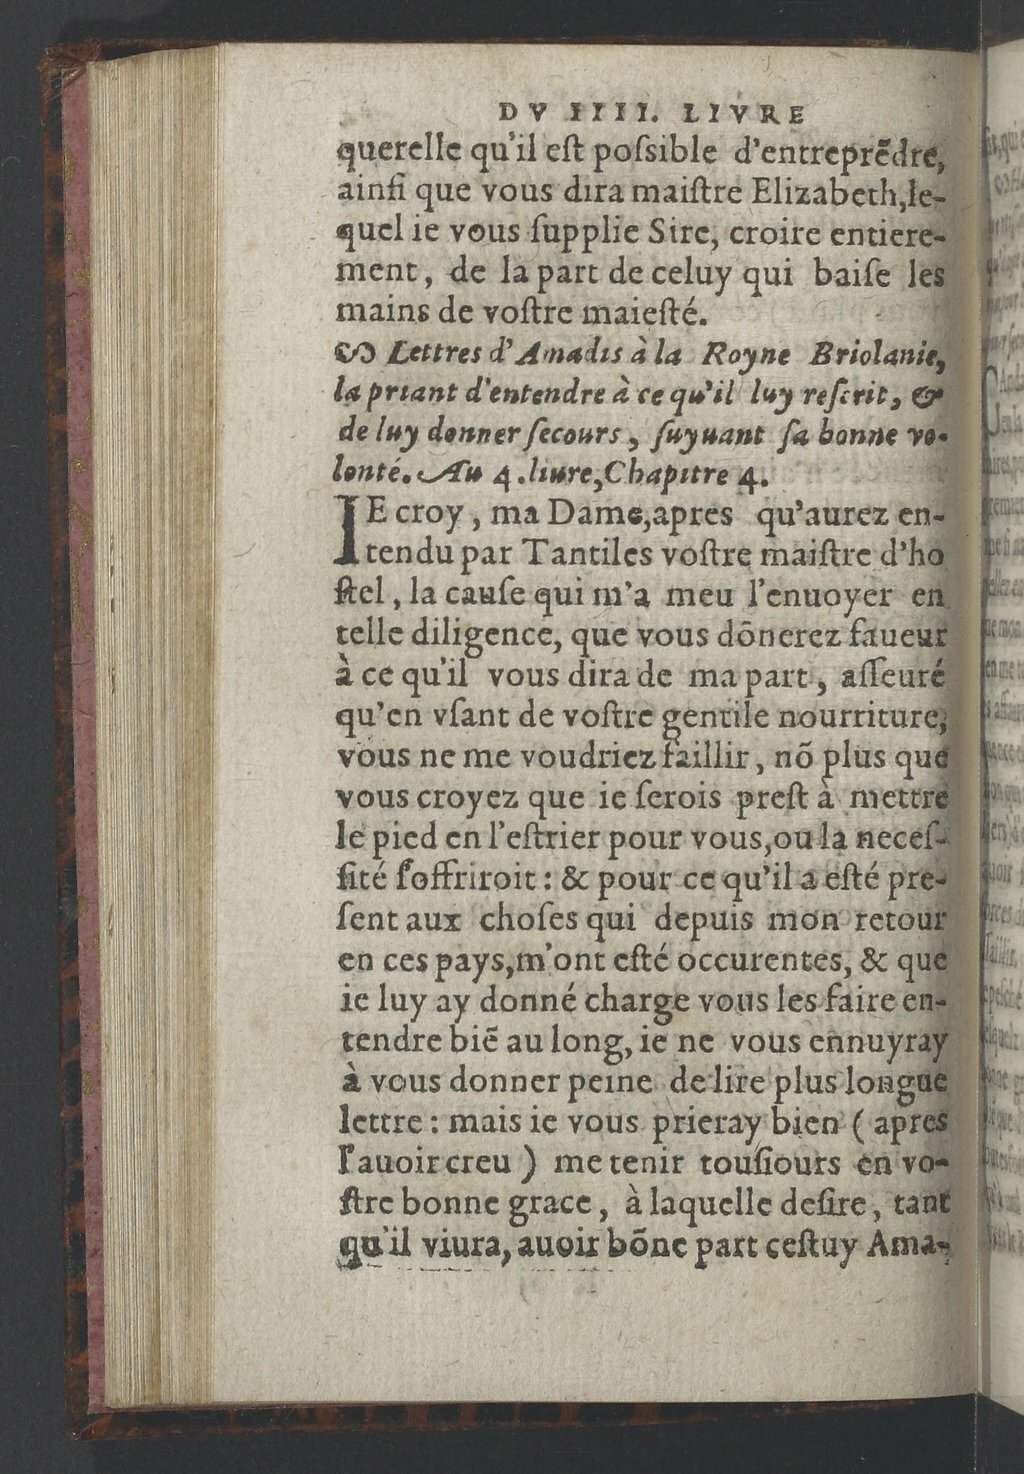 DV IIII. LIVRE
querelle qu'il eſt poſsible d'entreprẽdre,
ainſi que vous dira maiſtre Elizabeth,le-
quel ie vous ſupplie Sire, croire entiere-
ment, de la part de celuy qui baiſe les
mains de voſtre maieſté.
Lettres d'Amadis à la Royne Briolanie,
la priant d'entendre à ce qu'il luy reſcrit, &
de luy donner ſecours, ſuyuant ſa bonne vo-
lonté. Au 4.liure,Chapitre 4.
IE croy, ma Dame,apres qu'aurez en-
tendu par Tantiles voſtre maiſtre d'ho
ſtel, la cauſe qui m'a meu l'enuoyer en
telle diligence, que vous dõnerez faueur
à ce qu'il vous dira de ma part, aſſeuré
qu'en vſant de voſtre gentile nourriture,
vous ne me voudriez faillir, nõ plus que
vous croyez que ie ſerois preſt à mettre
le pied en l'eſtrier pour vous,ou la neceſ-
ſité ſ'offriroit: & pour ce qu'il a eſté pre-
ſent aux choſes qui depuis mon retour
en ces pays,m'ont eſté occurentes, & que
ie luy ay donné charge vous les faire en-
tendre biẽ au long, ie ne vous ennuyray
à vous donner peine de lire plus longue
lettre: mais ie vous prieray bien (apres
l'auoir creu) me tenir touſiours en vo-
ſtre bonne grace, à laquelle deſire, tant
qu'il viura, auoir bõne part ceſtuy Ama-